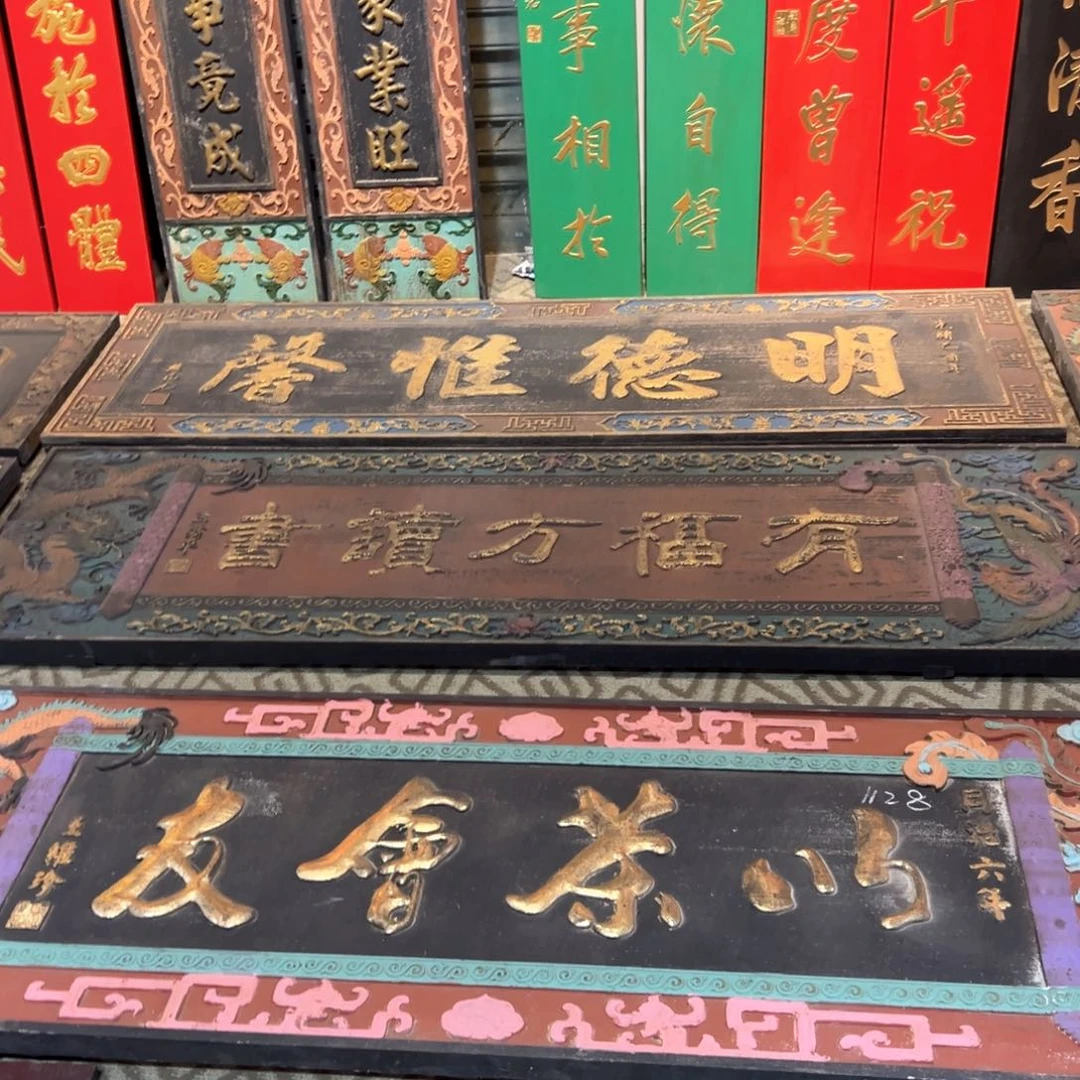 清香
年遙祝
度曾逢
懷自得
事相於
家業旺
事竟成
施於四體
明德惟馨
有福方讀書
1128
同治六年
以茶會友